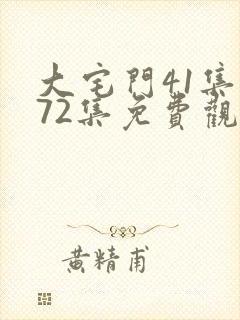 大宅門41集
72集免費觀
黃精甫